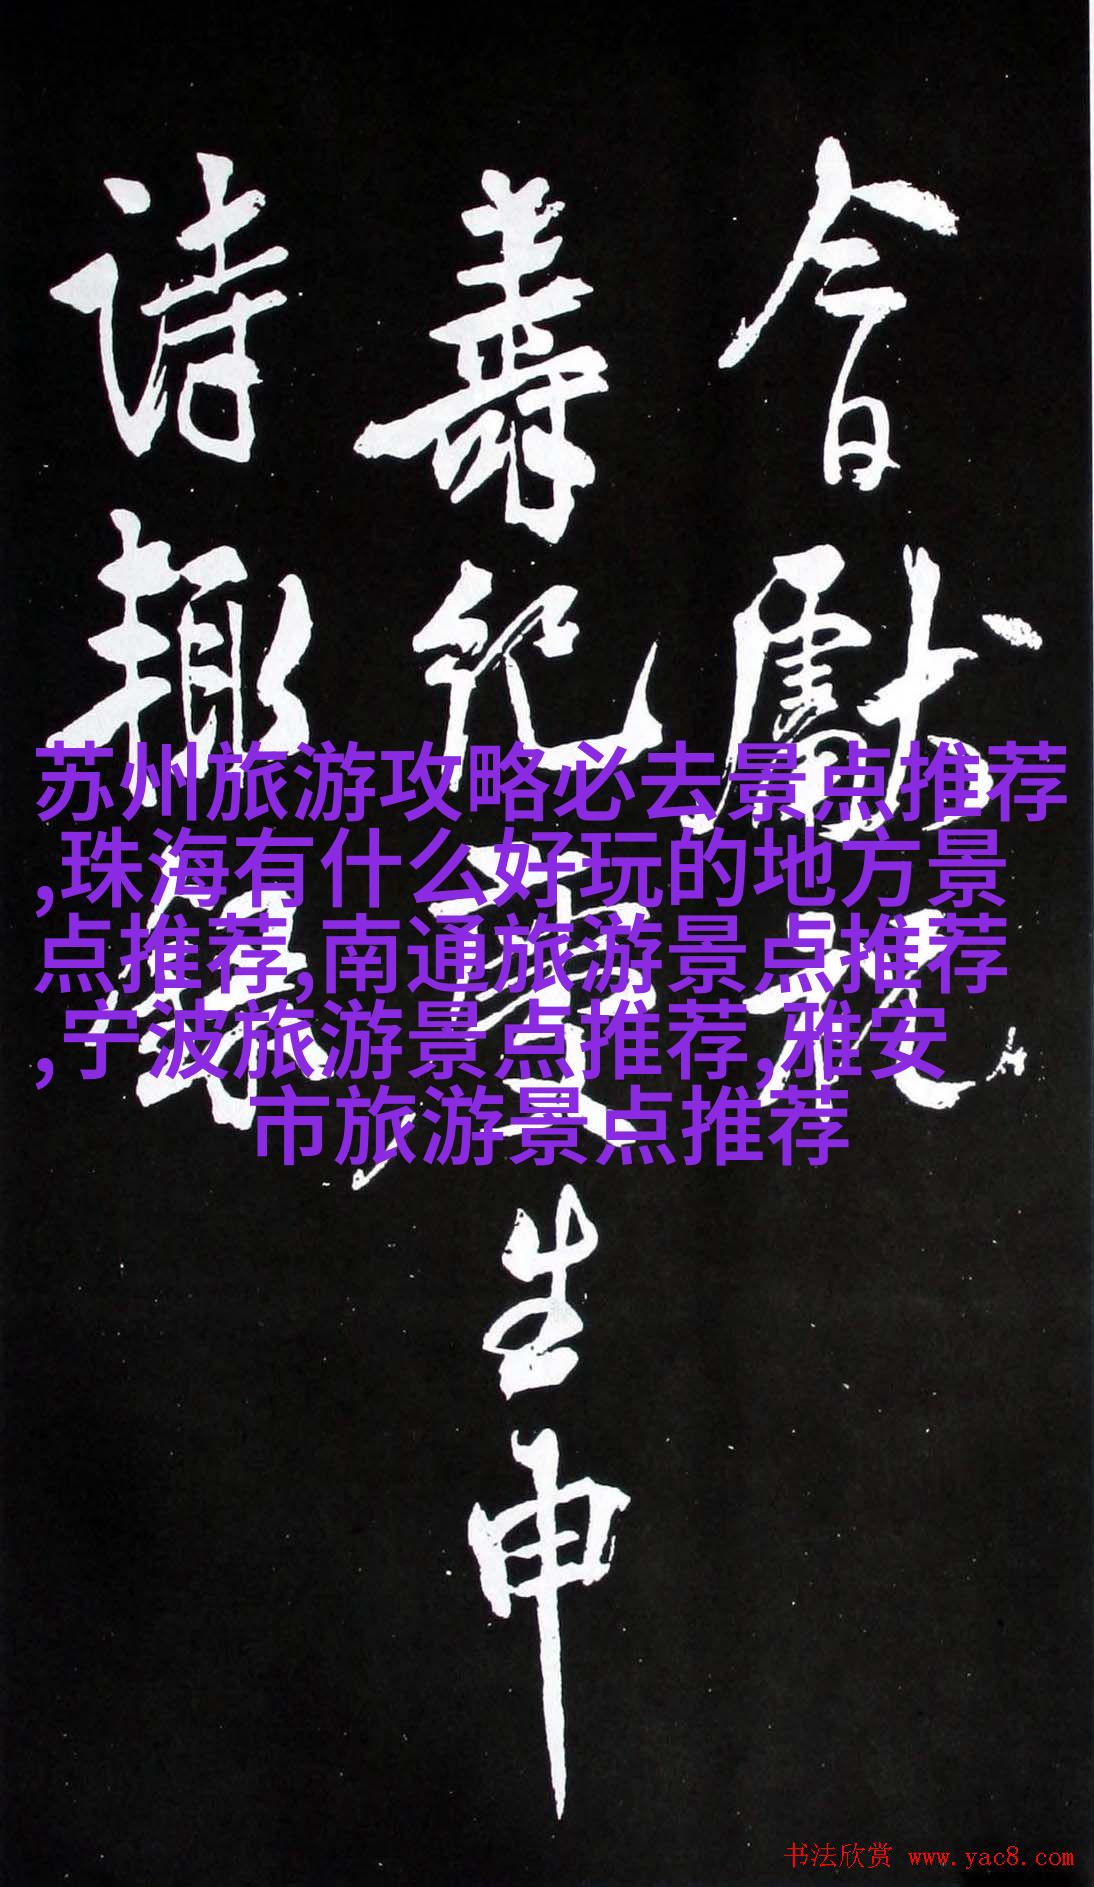 今日獻祝
壽紀庚生申
詩趣
苏州旅游攻略必去景点推荐
,珠海有什么好玩的地方景
点推荐,南通旅游景点推荐
,宁波旅游景点推荐,雅安
市旅游景点推荐
书法欣赏 www.yac8.com